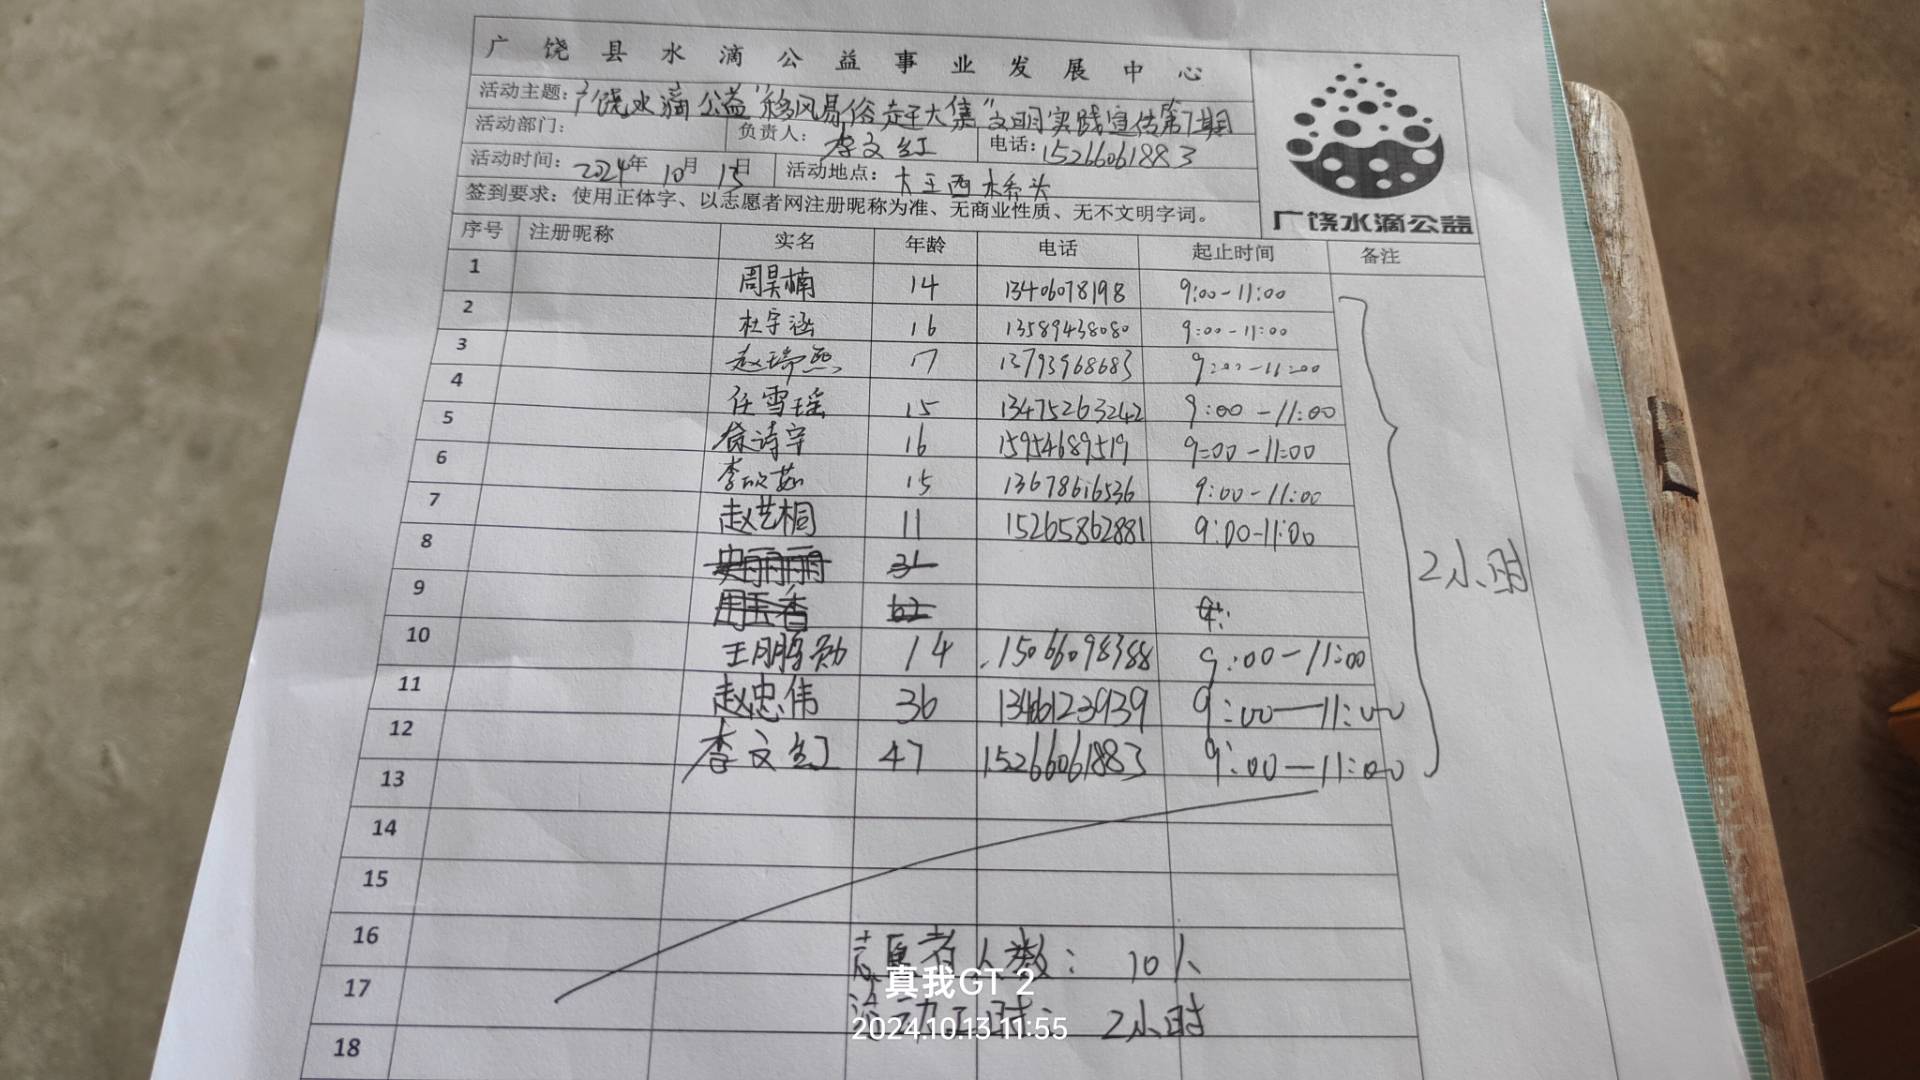 广饶县水滴公益事业发展中心
活动主题：广饶水滴公益“移风易俗赶大集”文明实践宣传第7期
活动部门： 负责人：李文红 电话：15266061883
活动时间：2024年10月13日 活动地点：大王西水桥头
签到要求：使用正体字、以志愿者网注册昵称为准、无商业性质、无不文明字词。
广饶水滴公益
序号 注册昵称 实名 年龄 电话 起止时间 备注
1 周昊楠 14 13406078198 9:00-11:00
2 杜宇涵 16 13589438080 9:00-11:00
3 赵瑞熙 17 13793968683 9:00-11:00
4 任雪瑶 15 13475263242 9:00-11:00
5 徐诗宇 16 15954689519 9:00-11:00
6 李欣茹 15 13678616536 9:00-11:00
7 赵艺桐 11 15265862881 9:00-11:00
8 史丽丽 31
2小时
9 周玉香 62
10 王鹏勋 14 15066098388 9:00-11:00
11 赵忠伟 36 13461123939 9:00-11:00
12 李文红 47 15266061883 9:00-11:00
13
14
15
16 志愿者人数：10人
17 活动工时：2小时
18
真我GT 2
2024.10.13 11:55